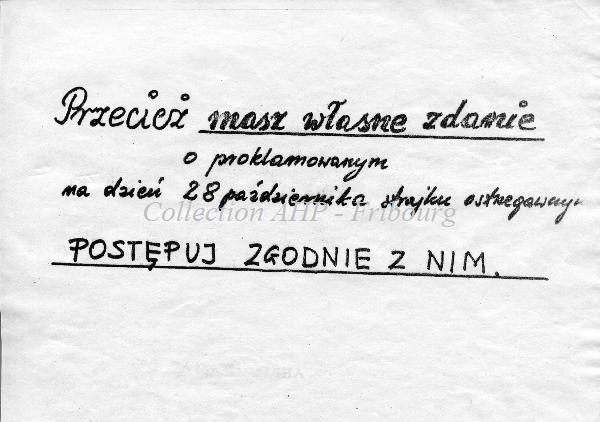 Przecież masz własne zdanie
o proklamowanym
na dzień 28 października strajku ostrzegawczym
Collection AHP - Fribourg
POSTĘPUJ ZGODNIE Z NIM.